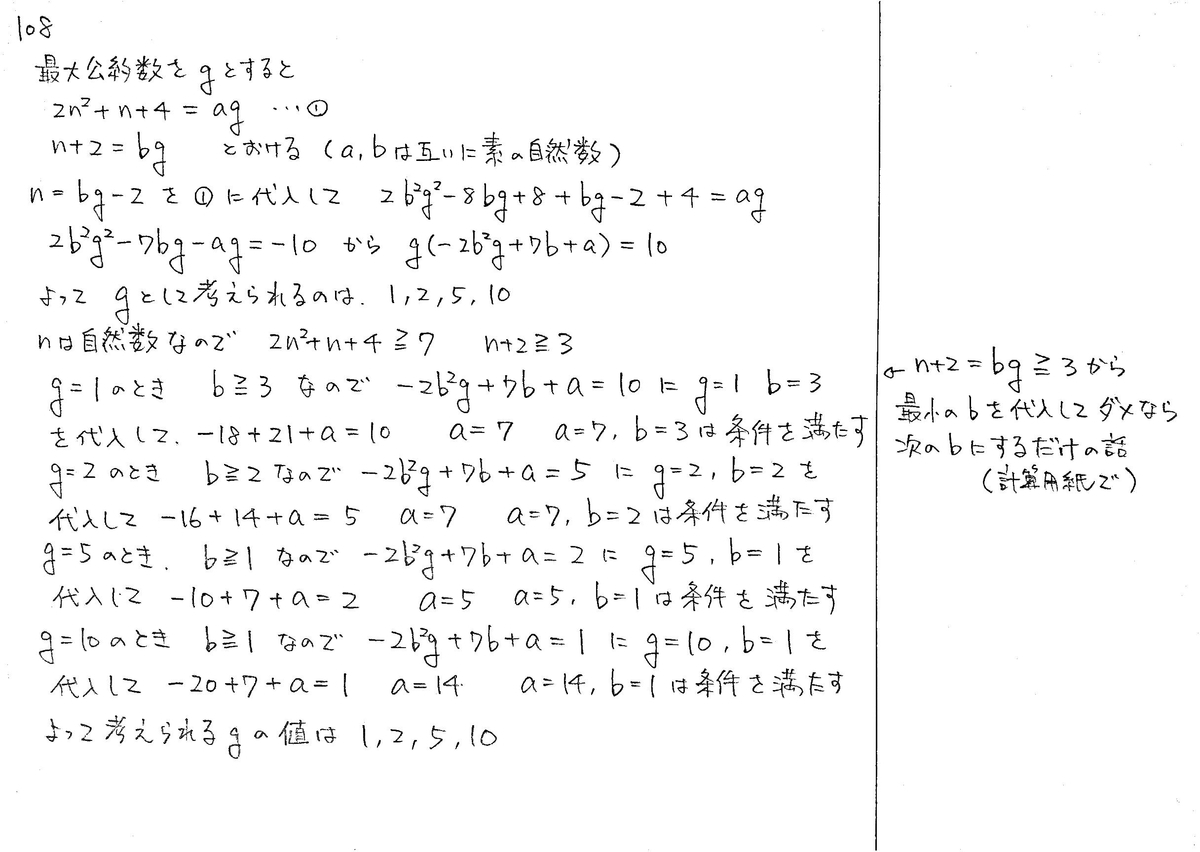 108
最大公約数を g とすると
2n²+n+4 = ag …①
n+2 = bg とおける (a, b は互いに素の自然数)
n = bg-2 を ① に代入して 2b²g²-8bg+8+bg-2+4 = ag
2b²g²-7bg-ag = -10 から g(-2b²g+7b+a) = 10
よって g として考えられるのは. 1, 2, 5, 10
nは自然数なので 2n²+n+4 ≧ 7 n+2 ≧ 3
g=1 のとき b≧3 なので -2b²g+7b+a = 10 に g=1 b=3
を代入して. -18+21+a = 10 a=7 a=7, b=3 は条件を満たす
g=2 のとき b≧2 なので -2b²g+7b+a = 5 に g=2, b=2 を
代入して -16+14+a = 5 a=7 a=7, b=2 は条件を満たす
g=5 のとき. b≧1 なので -2b²g+7b+a = 2 に g=5, b=1 を
代入して -10+7+a = 2 a=5 a=5, b=1 は条件を満たす
g=10 のとき b≧1 なので -2b²g+7b+a = 1 に g=10, b=1 を
代入して -20+7+a = 1 a=14 a=14, b=1 は条件を満たす
よって考えられる g の値は 1, 2, 5, 10
← n+2 = bg ≧ 3 から
最小の b を代入してダメなら
次の b にするだけの話
(計算用紙で)